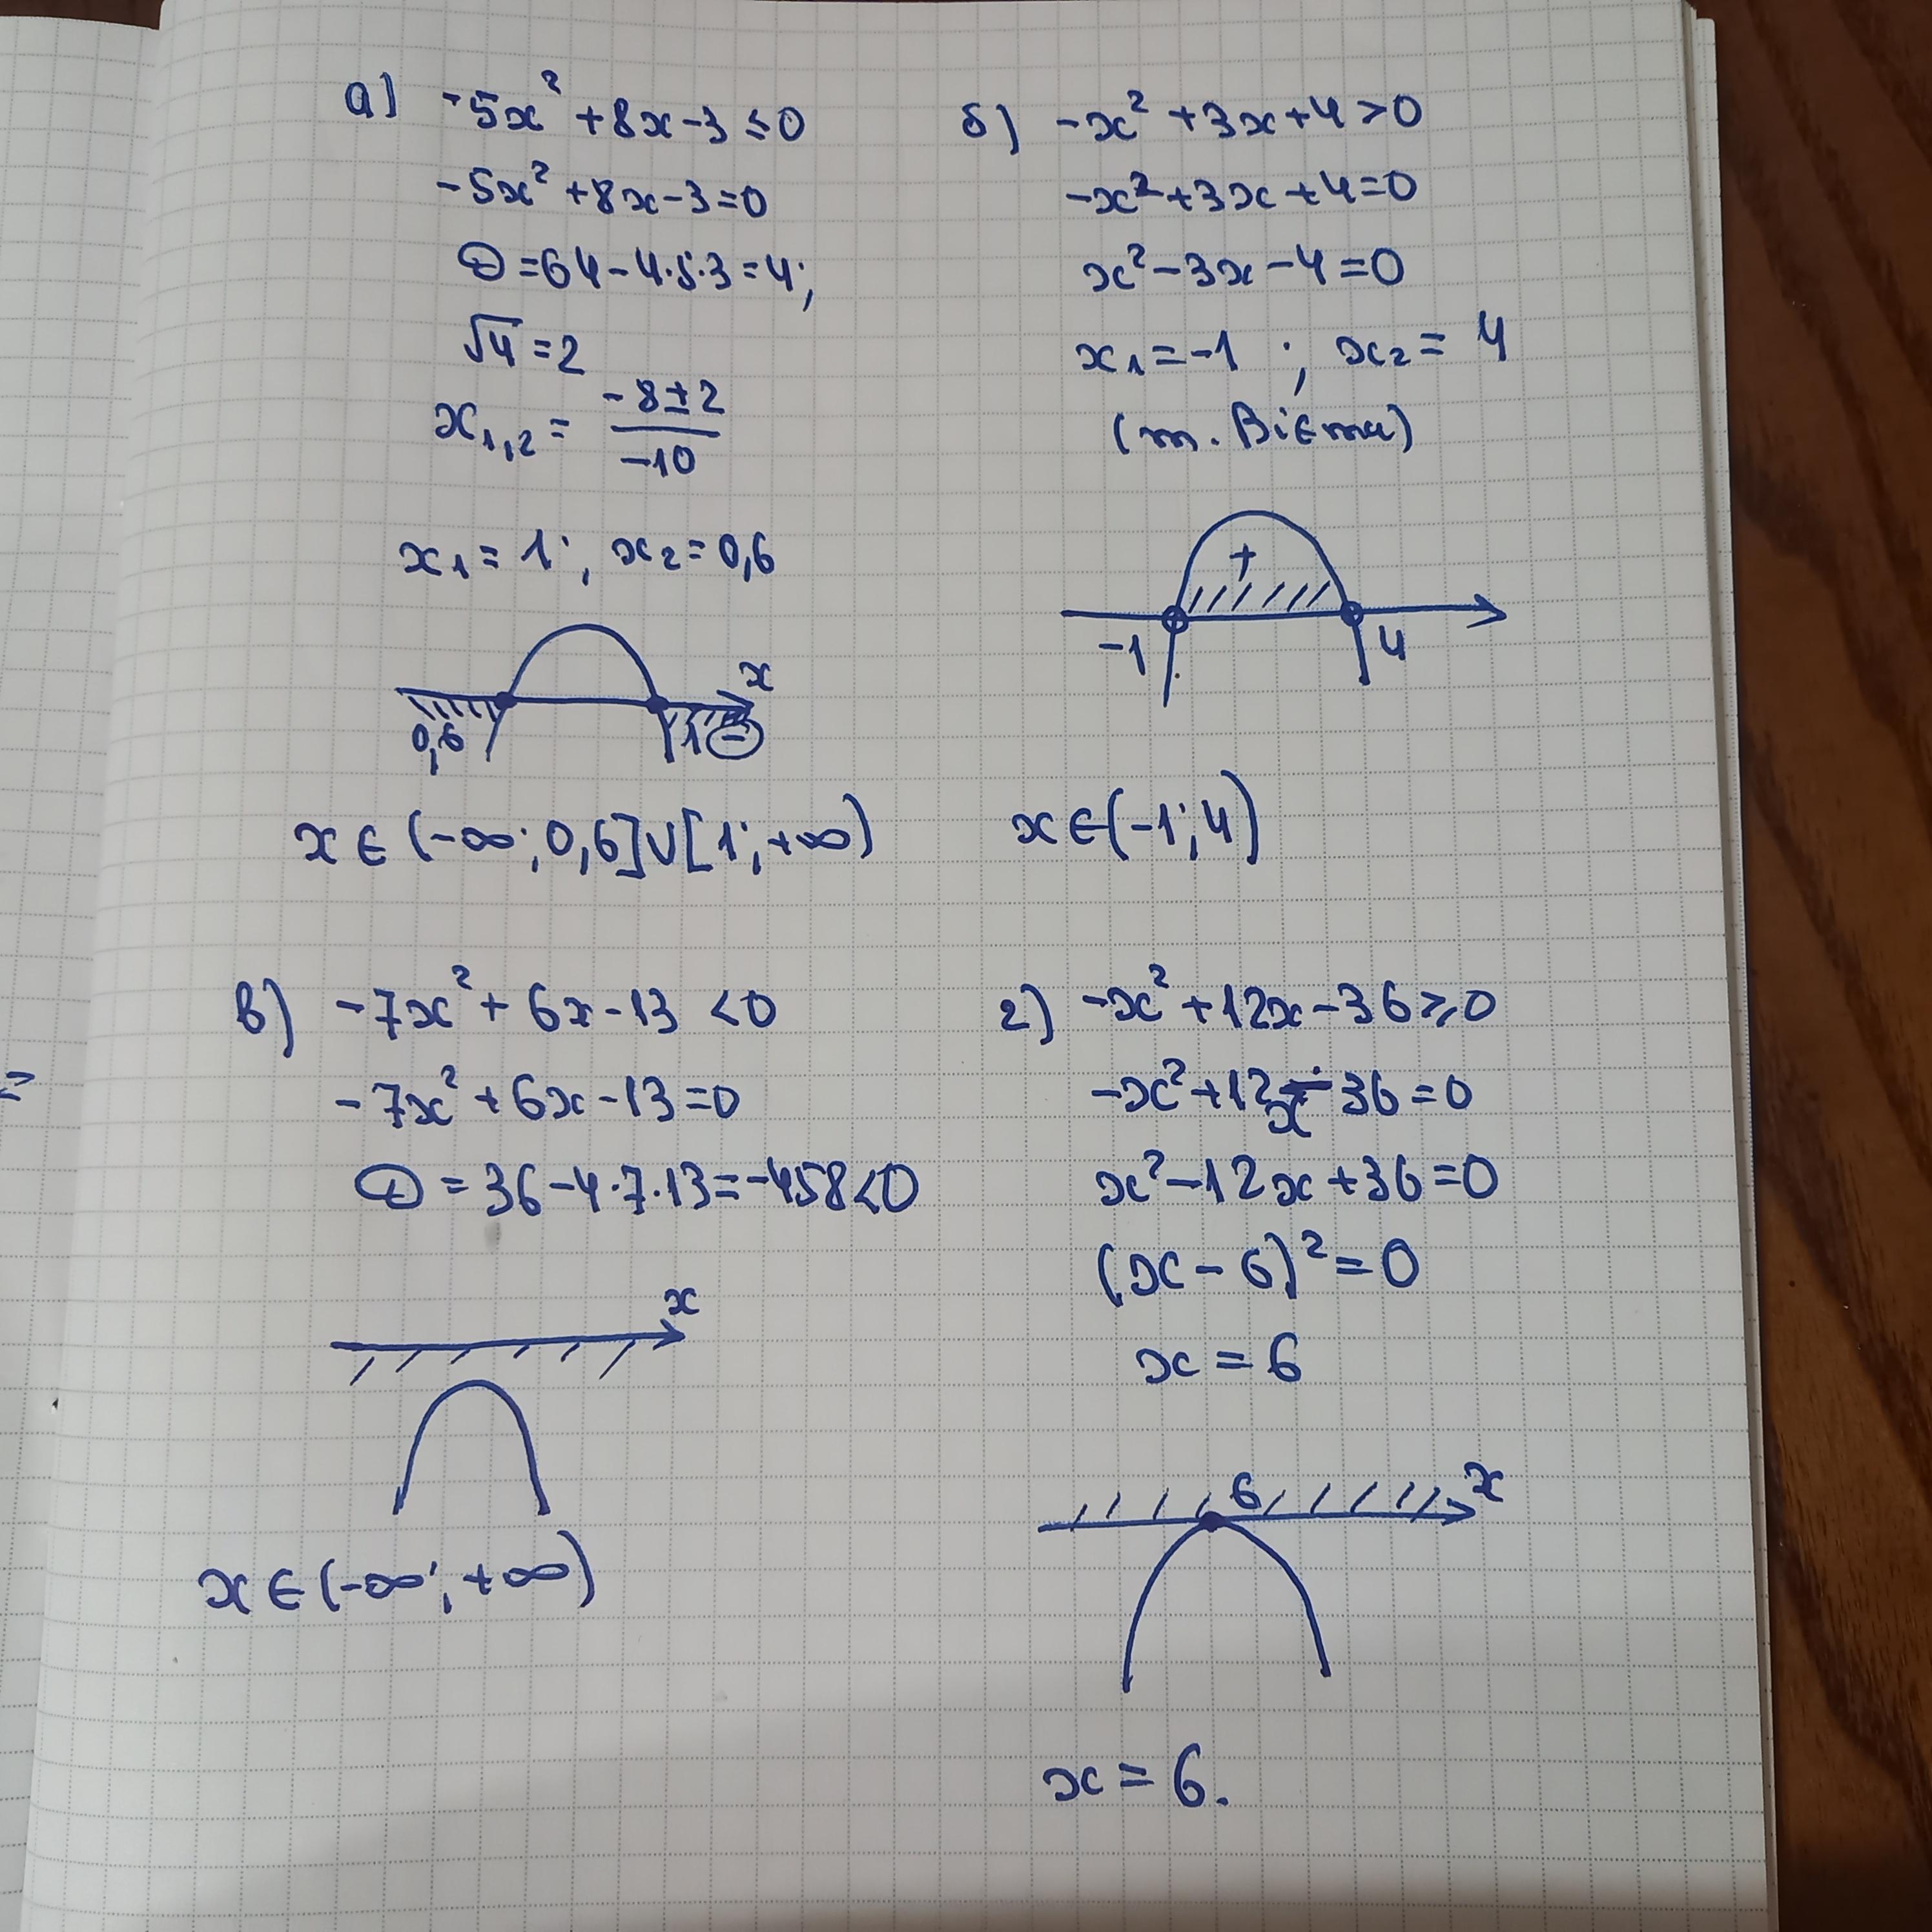 а) -5x² + 8x - 3 ≤ 0
-5x² + 8x - 3 = 0
D = 64 - 4·5·3 = 4;
√4 = 2
x₁,₂ = (-8 ± 2) / -10
x₁ = 1; x₂ = 0,6
x
0,6 1 -
x ∈ (-∞; 0,6] ∪ [1; +∞)
б) -x² + 3x + 4 > 0
-x² + 3x + 4 = 0
x² - 3x - 4 = 0
x₁ = -1 ; x₂ = 4
(т. Вієта)
+
-1 4
x ∈ (-1; 4)
в) -7x² + 6x - 13 < 0
-7x² + 6x - 13 = 0
D = 36 - 4·7·13 = -458 < 0
x
x ∈ (-∞; +∞)
г) -x² + 12x - 36 ≥ 0
-x² + 12x - 36 = 0
x² - 12x + 36 = 0
(x - 6)² = 0
x = 6
6 x
x = 6.